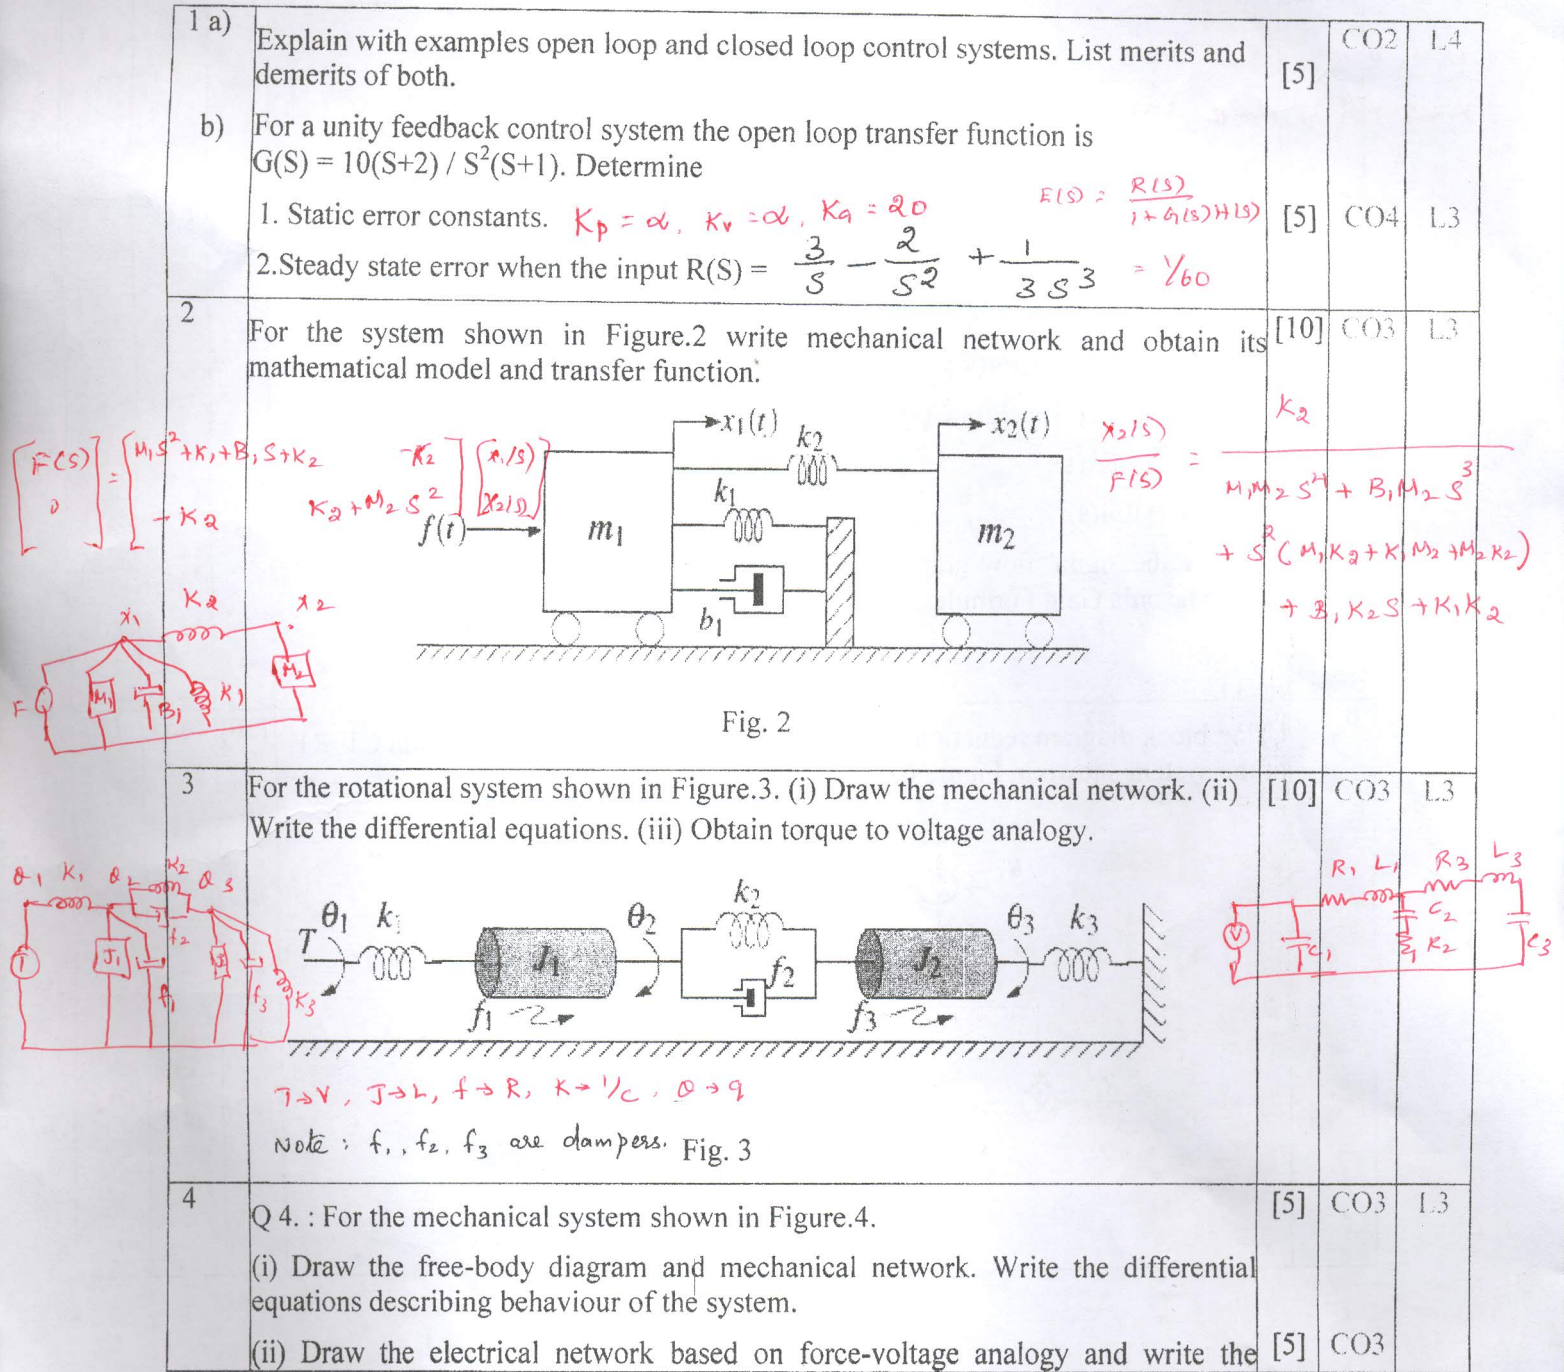 1 a)
Explain with examples open loop and closed loop control systems. List merits and
demerits of both.
[5]
CO2
L4
b) For a unity feedback control system the open loop transfer function is
G(S) = 10(S+2) / S²(S+1). Determine
1. Static error constants. Kp = α, Kv = α, Ka = 20
E(S) = R(S) / 1 + G(S)H(S)
[5] CO4 L3
2.Steady state error when the input R(S) = 3/S - 2/S² + 1/3S³ = 1/60
2
For the system shown in Figure.2 write mechanical network and obtain its
mathematical model and transfer function.
[10] CO3 L3
[F(S) 0] = [M1S²+K1+B1S+K2 -K2 -K2 K2+M2S²] [X1(S) X2(S)]
x1(t)
k2
x2(t)
k1
f(t)
m1
m2
b1
X2(S) / F(S) = K2 / M1M2S⁴ + B1M2S³
+ S²(M1K2+K1M2+M2K2)
+ B1K2S + K1K2
x1 K2 x2
F M1 B1 K1 M2
Fig. 2
3
For the rotational system shown in Figure.3. (i) Draw the mechanical network. (ii)
Write the differential equations. (iii) Obtain torque to voltage analogy.
[10] CO3 L3
θ1 K1 θ2 K2 θ3
f2
T J1 f1 J2 f3 K3
T θ1 k1 J1 θ2 k2 f2 J2 θ3 k3
f1 f3
R1 L1 R3 L3
V C1 C2 R2 C3
T→V, J→L, f→R, K→1/C, θ→q
Note: f1, f2, f3 are dampers.
Fig. 3
4
Q 4. : For the mechanical system shown in Figure.4.
[5] CO3 L3
(i) Draw the free-body diagram and mechanical network. Write the differential
equations describing behaviour of the system.
(ii) Draw the electrical network based on force-voltage analogy and write the
[5] CO3